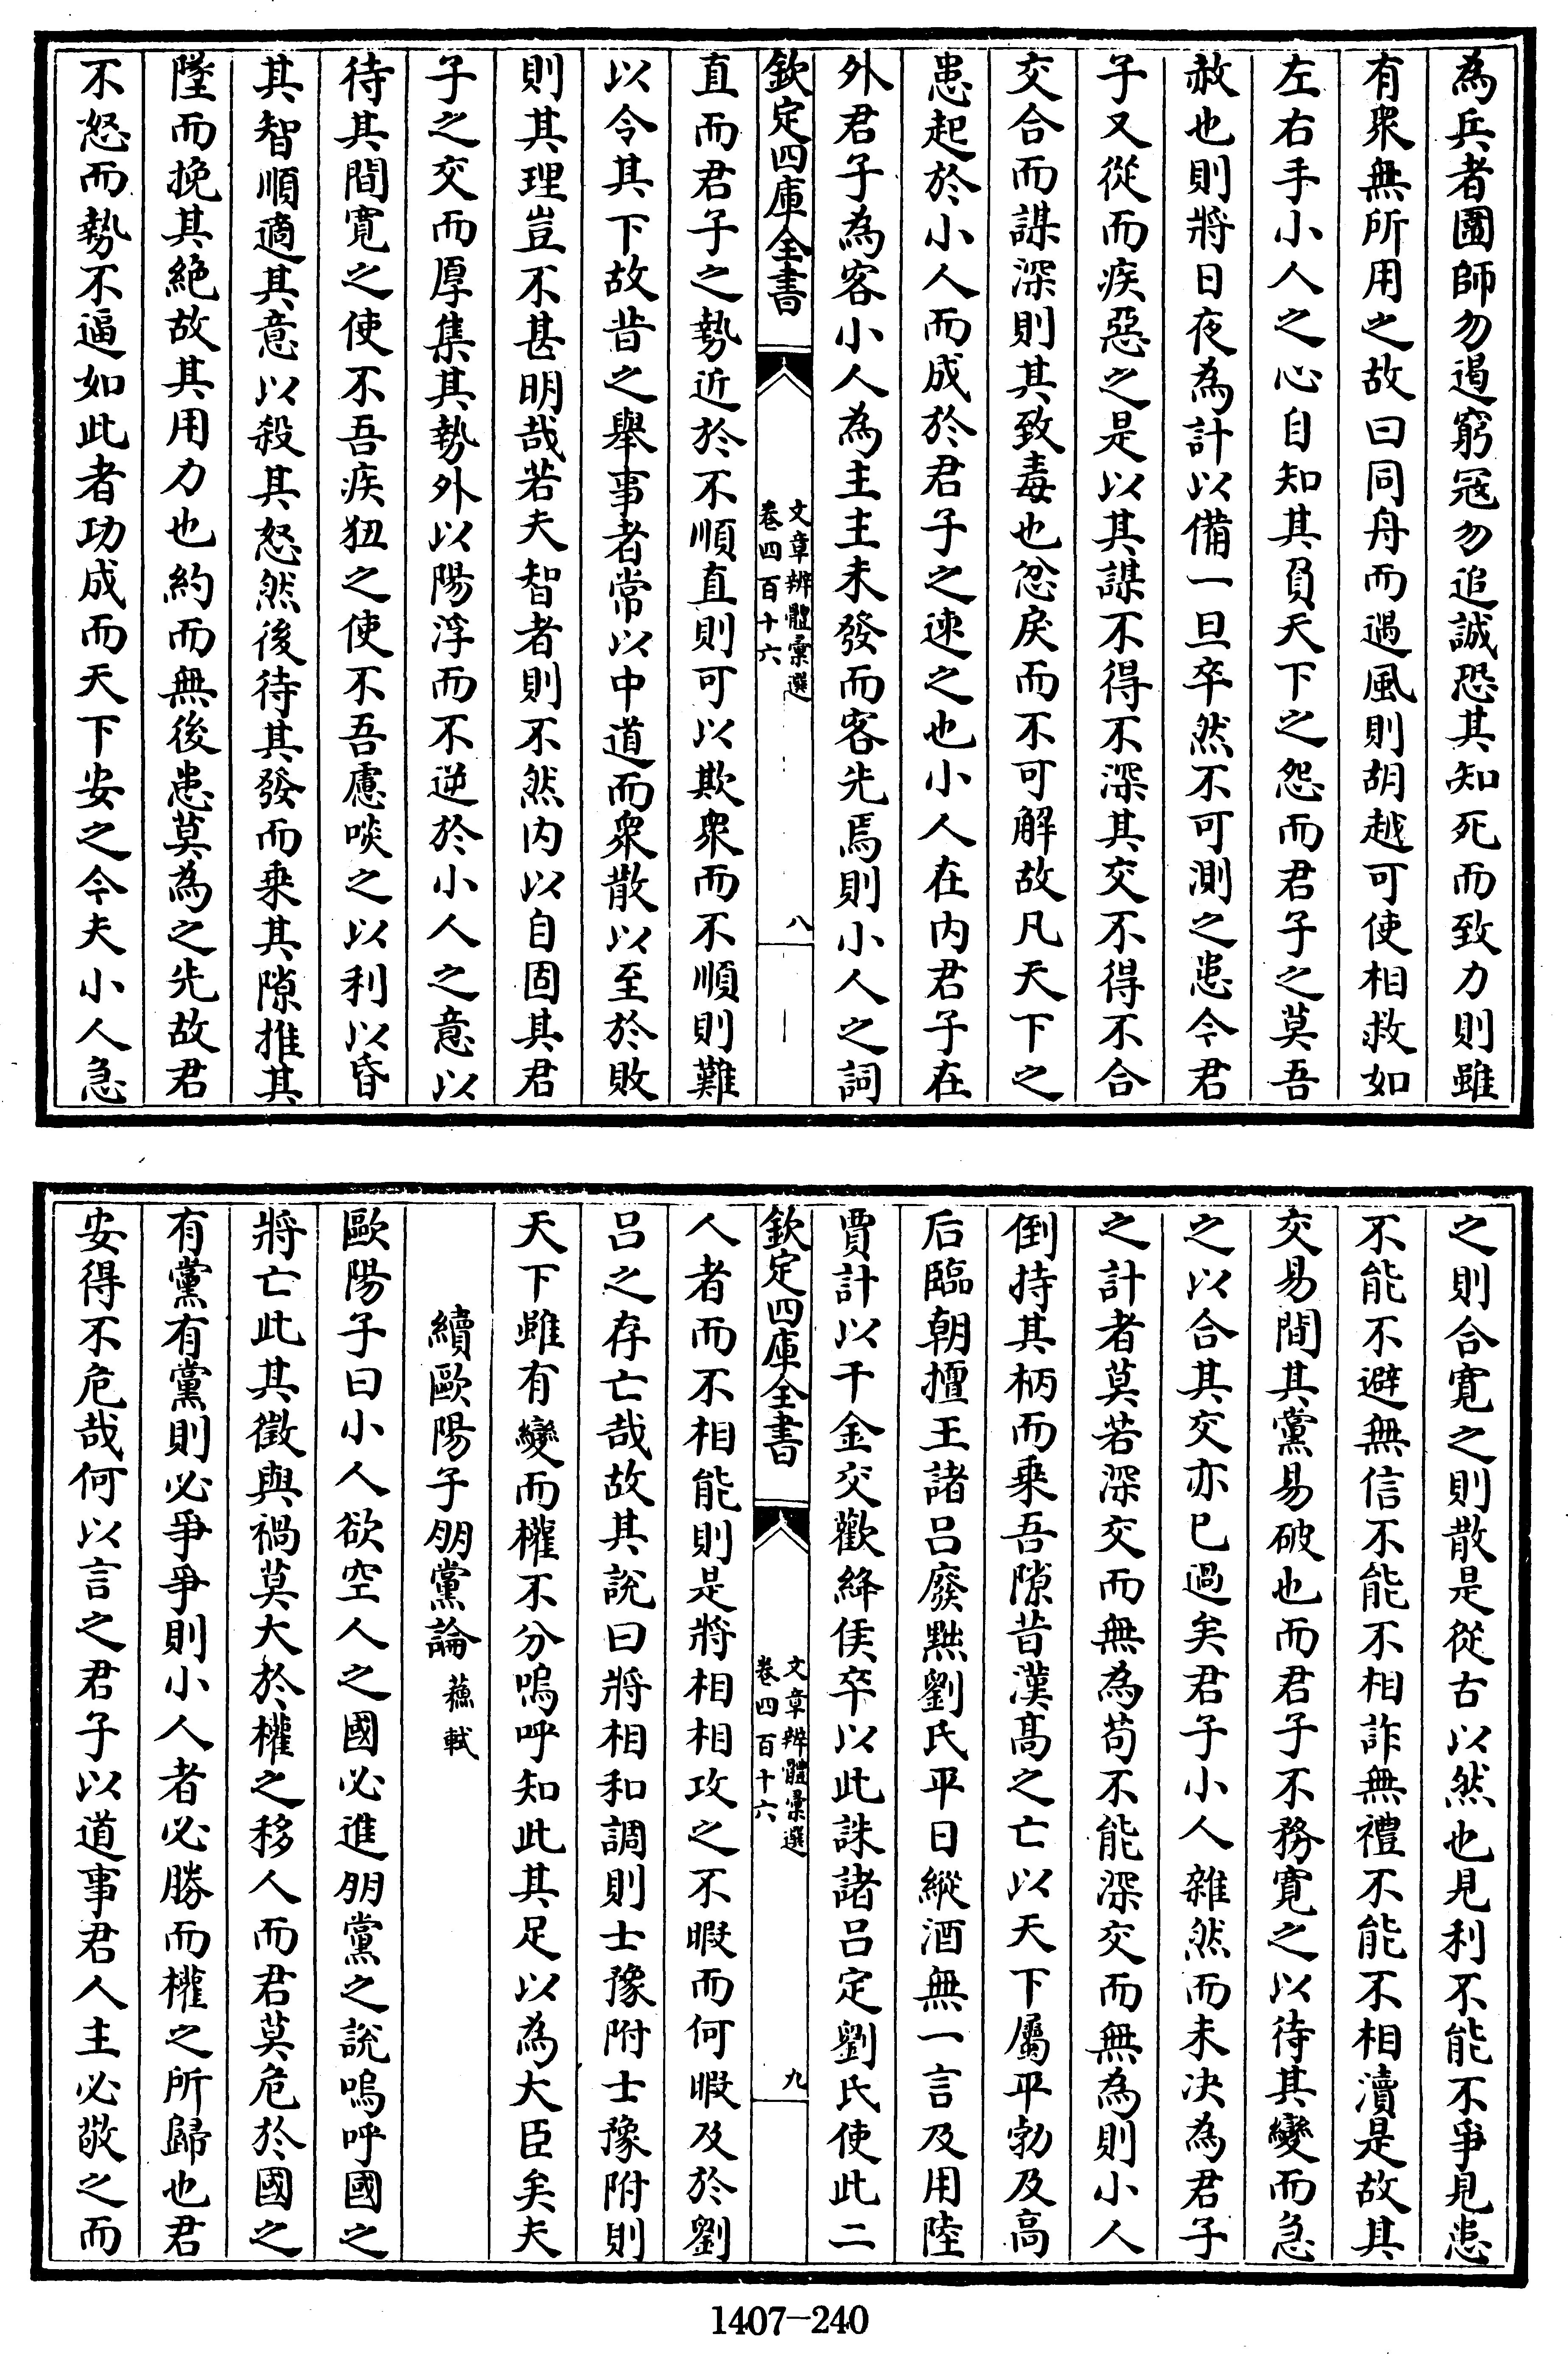 為兵者圍師勿遏窮冦勿追誠恐其知死而致力則雖
有衆無所用之故曰同舟而遇風則胡越可使相救如
左右手小人之心自知其負天下之怨而君子之莫吾
赦也則將日夜為計以備一旦卒然不可測之患今君
子又從而疾惡之是以其謀不得不深其交不得不合
交合而謀深則其致毒也忿戾而不可解故凡天下之
患起於小人而成於君子之速之也小人在内君子在
外君子為客小人為主主未發而客先焉則小人之詞
欽定四庫全書
文章辨體彙選
卷四百十六
八
直而君子之勢近於不順直則可以欺衆而不順則難
以令其下故昔之舉事者常以中道而衆散以至於敗
則其理豈不甚明哉若夫智者則不然内以自固其君
子之交而厚集其勢外以陽浮而不逆於小人之意以
待其間寛之使不吾疾狃之使不吾慮啖之以利以昏
其智順適其意以殺其怒然後待其發而乗其隙推其
墜而挽其絶故其用力也約而無後患莫為之先故君
不怒而勢不逼如此者功成而天下安之今夫小人急
之則合寛之則散是從古以然也見利不能不爭見患
不能不避無信不能不相詐無禮不能不相瀆是故其
交易間其黨易破也而君子不務寛之以待其變而急
之以合其交亦已過矣君子小人雜然而未决為君子
之計者莫若深交而無為苟不能深交而無為則小人
倒持其柄而乗吾隙昔漢髙之亡以天下屬平勃及高
后臨朝擅王諸吕廢黜劉氏平日縱酒無一言及用陸
賈計以千金交歡絳侯卒以此誅諸吕定劉氏使此二
欽定四庫全書
文章辨體彙選
卷四百十六
九
人者而不相能則是將相相攻之不暇而何暇及於劉
吕之存亡哉故其說曰將相和調則士豫附士豫附則
天下雖有變而權不分嗚呼知此其足以為大臣矣夫
續歐陽子朋黨論 蘓軾
歐陽子曰小人欲空人之國必進朋黨之說嗚呼國之
將亡此其徵與禍莫大於權之移人而君莫危於國之
有黨有黨則必爭爭則小人者必勝而權之所歸也君
安得不危哉何以言之君子以道事君人主必敬之而
1407-240